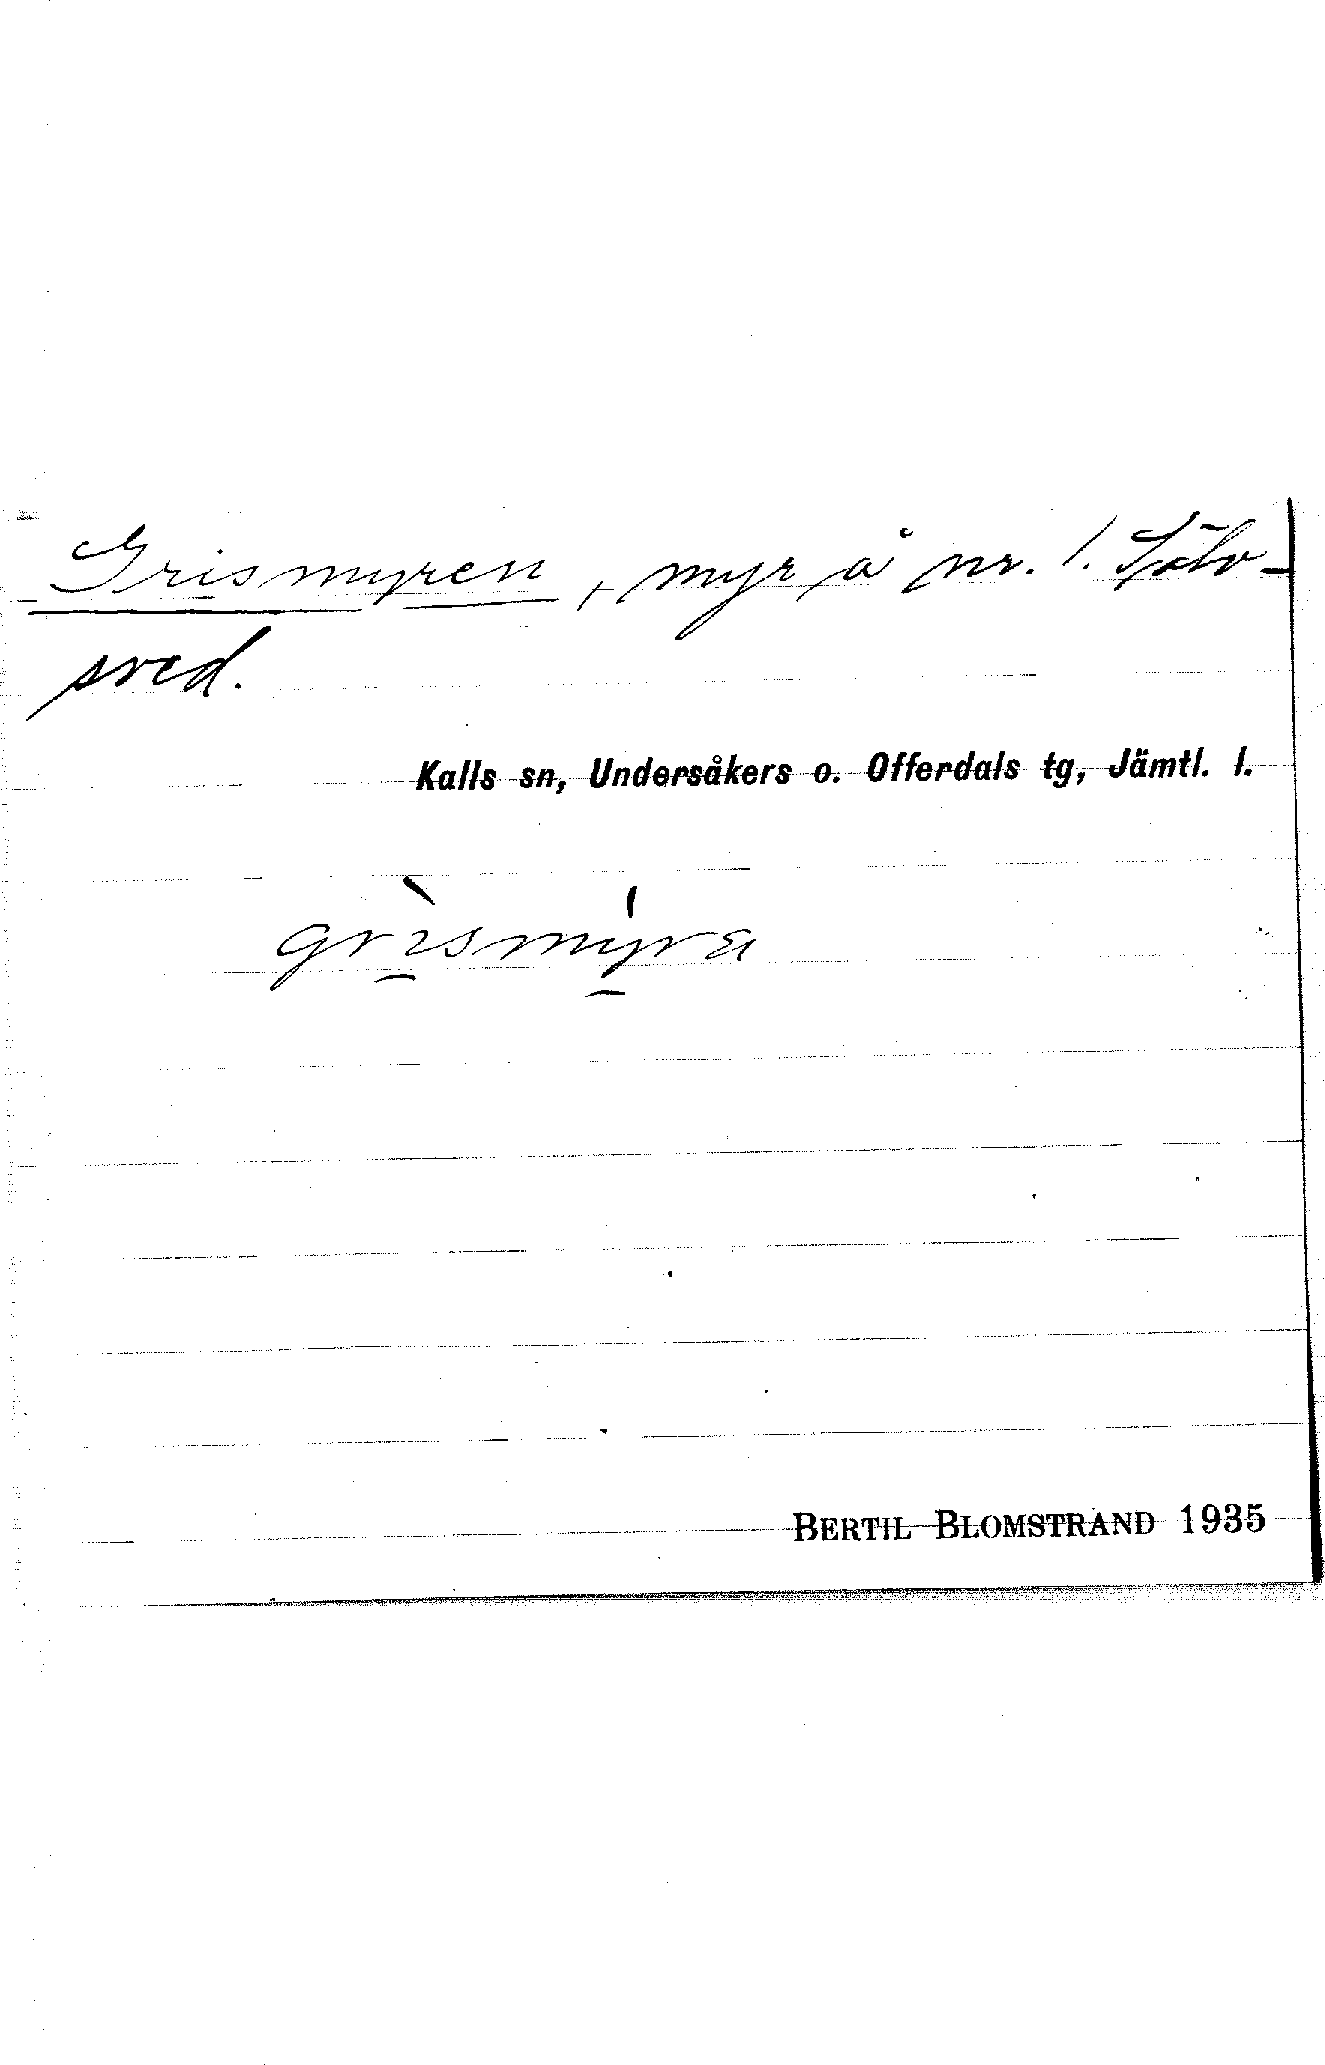 Grismyren, myr å nr. 1. Sölv-
sved.
Kalls sn, Undersåkers o. Offerdals tg, Jämtl. l.
grìsmýra
BERTIL BLOMSTRAND 1935